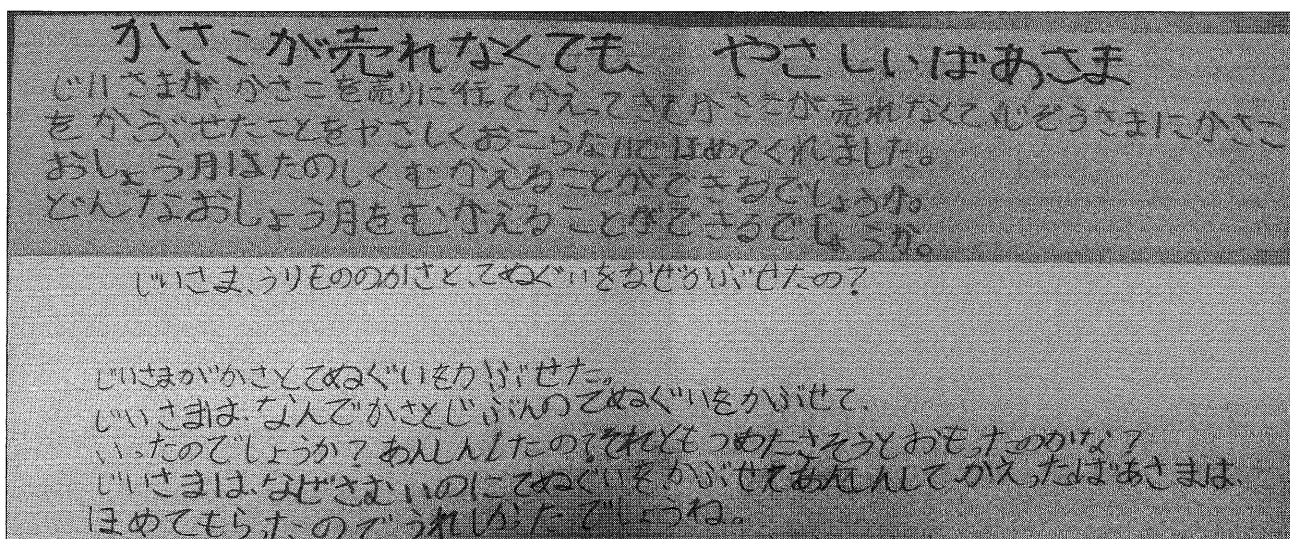 かさこが売れなくても、 やさしいばあさま
じいさまが、かさこを売りに行てかえってきてかさこが売れなくて、じぞうさまにかさこ
をかぶせたことをやさしくおこらないでほめてくれました。
おしょう月はたのしくむかえることができるでしょうか。
どんなおしょう月をむかえることができるでしょうか。
じいさま、うりもののかさと、てぬぐいをなぜかぶせたの?
じいさまがかさとてぬぐいをかぶせた。
じいさまは、なんでかさとじぶんのてぬぐいをかぶせて、
いったのでしょうか?あんしんしたの?それともつめたさそうとおもったのかな?
じいさまは、なぜさむいのにてぬぐいをかぶせてあんしんしてかえったばあさまは、
ほめてもらったのでうれしかたでしょうね。